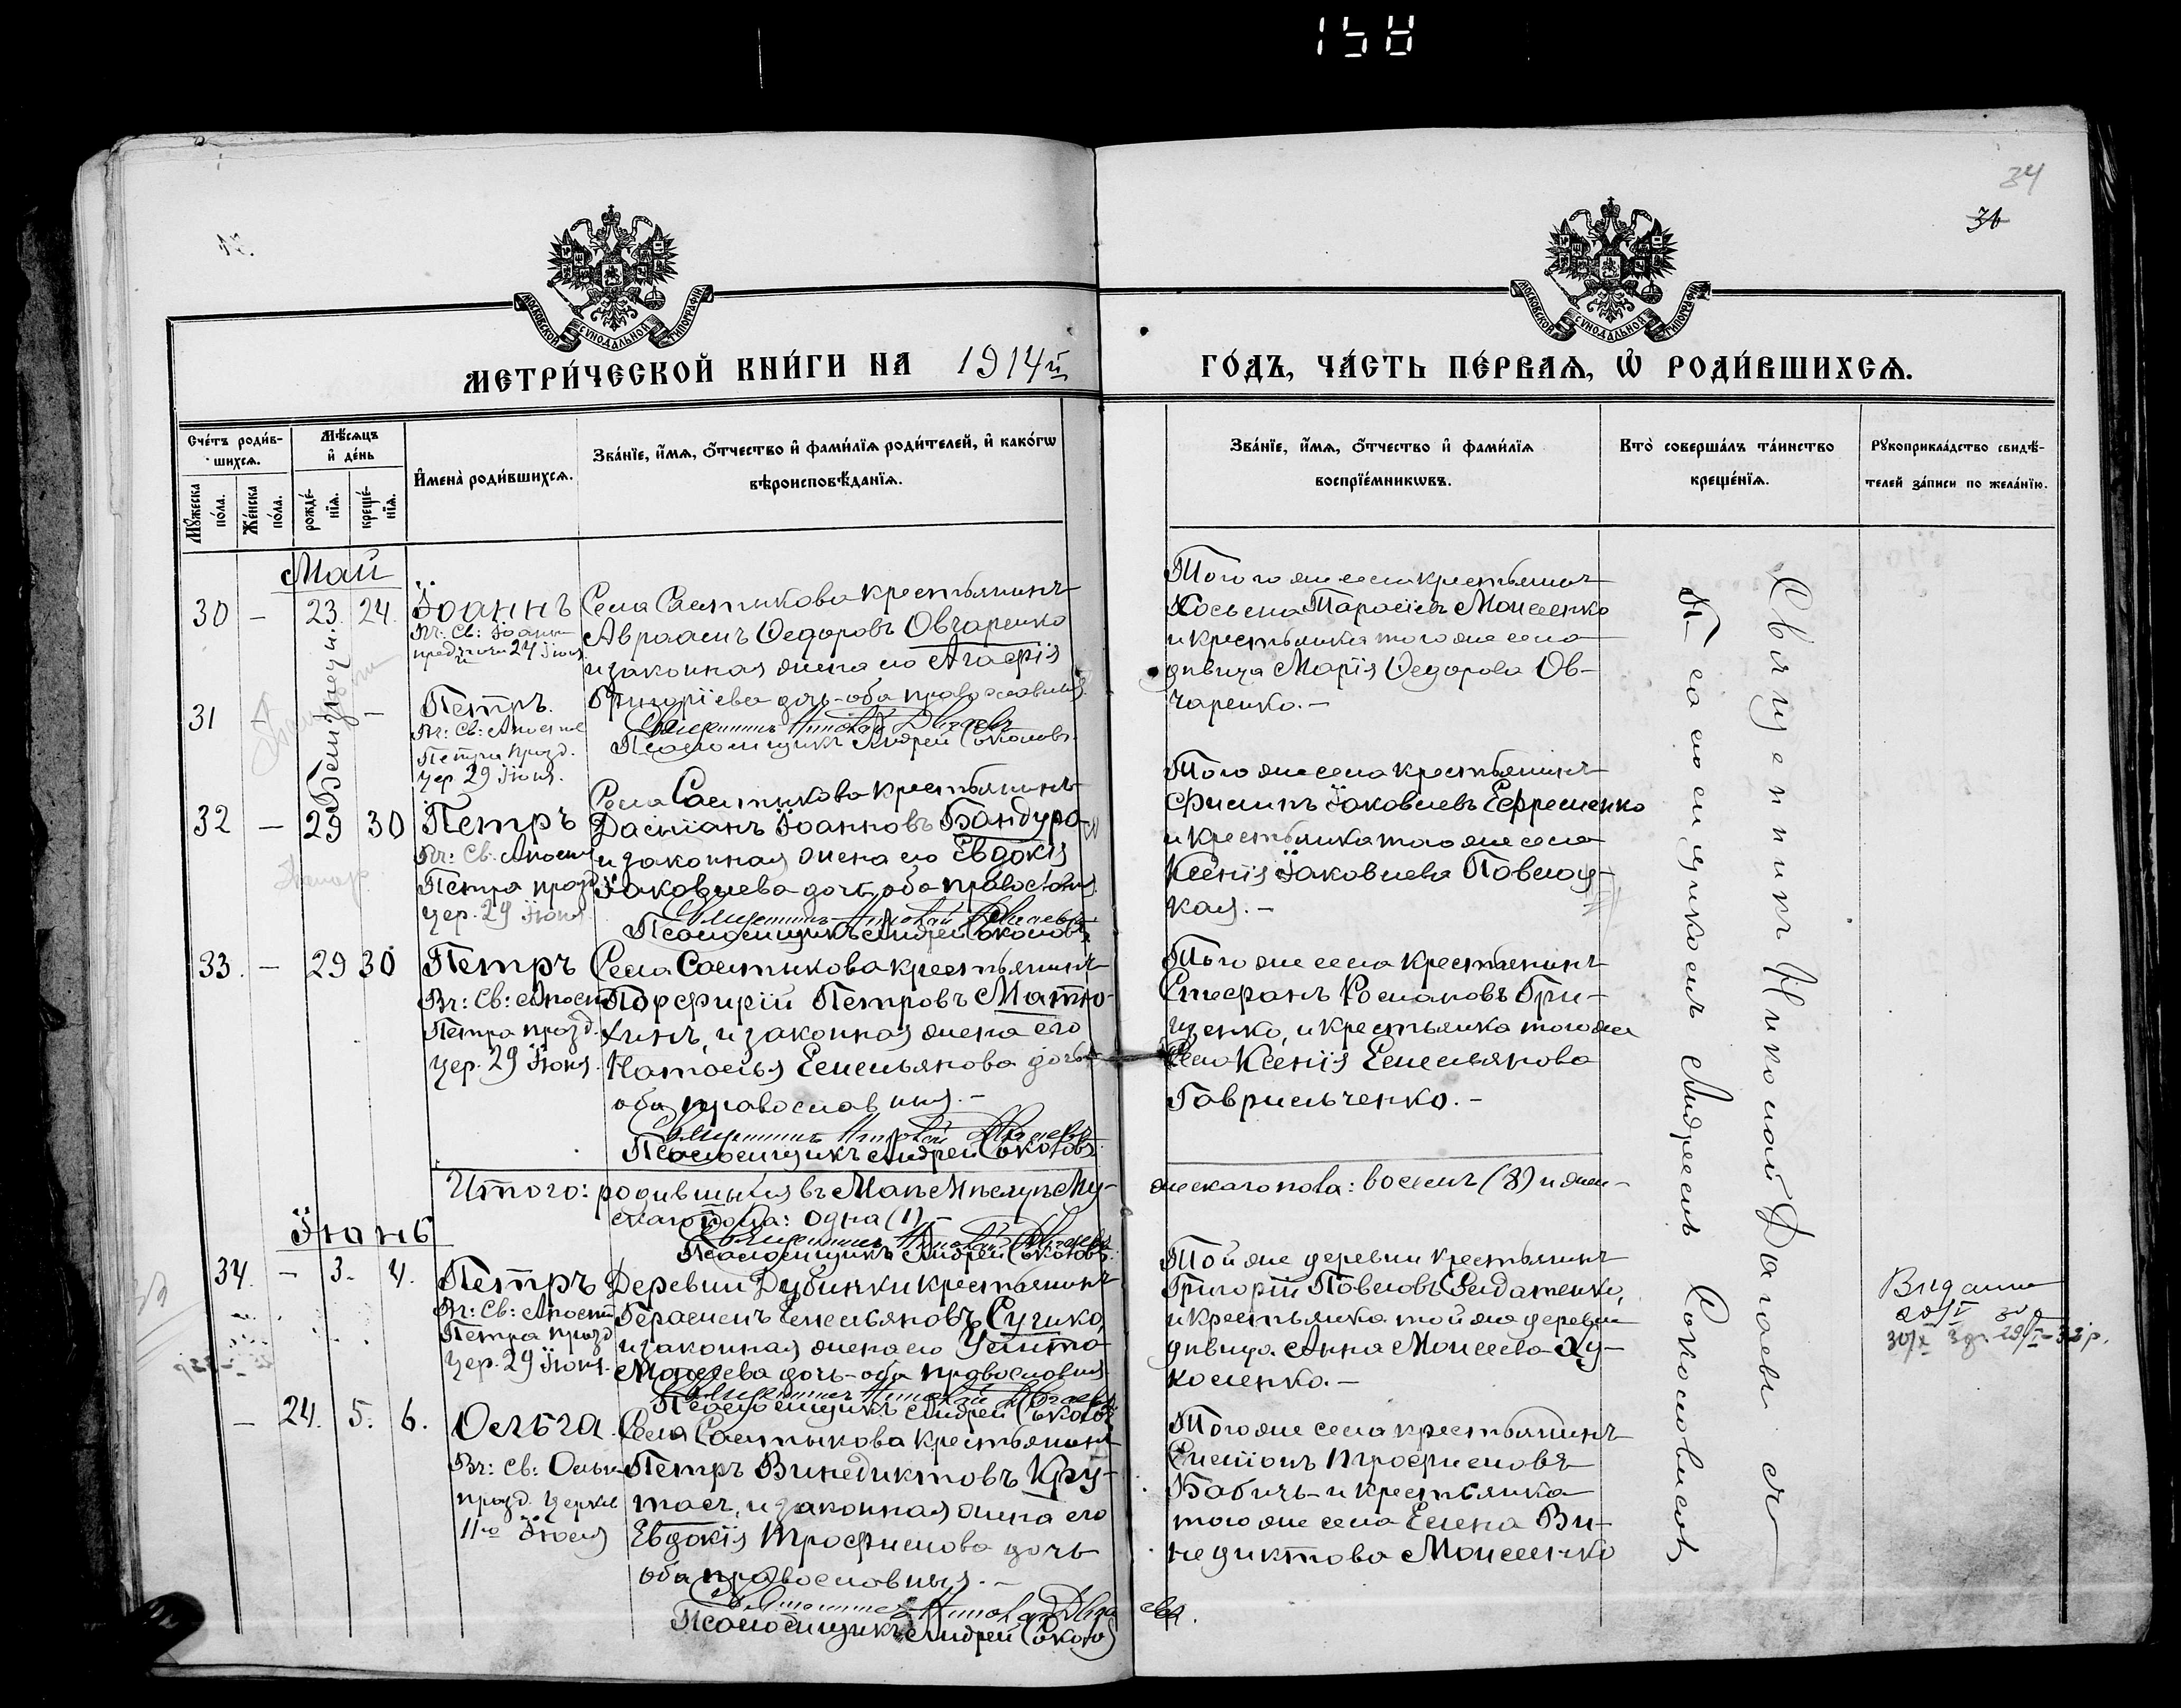 158
34
МОСКОВСКОЙ СУНОДАЛЬНОЙ ТИПОГРАФІИ
МОСКОВСКОЙ СУНОДАЛЬНОЙ ТИПОГРАФІИ
МЕТРИ́ЧЕСКОЙ КНИ́ГИ НА 1914й
ГО́ДЪ, ЧА́СТЬ ПЕ́РВАѦ, Ѡ҆ РОДИ́ВШИХСѦ.
Сче́тъ роди́в-
шихсѧ.
Мꙋ́жеска по́ла.
Же́нска по́ла.
Мѣ́сѧцъ и҆ де́нь
рожде́-нїѧ.
креще́-нїѧ.
И҆мена̀ роди́вшихсѧ.
Зва́нїе, и҆́мѧ, ѻ҆́тчество и҆ фами́лїѧ роди́телей, и҆ како́гѡ
вѣроисповѣ́данїѧ.
Зва́нїе, и҆́мѧ, ѻ҆́тчество и҆ фами́лїѧ
воспрїе́мникѡвъ.
Кто̀ соверша́лъ та́инство
креще́нїѧ.
Рꙋкоприкла́дство свидѣ́-
телей за́писи по жела́нїю.
Май
30 – 23. 24. Іоаннъ
Пч: Св: Іоанн
предтечи 24 Іюня
Села Састыкова крестьянинъ
Авраамъ Ѳедоровъ Овчаренко
и законная жена его Агафія
Григоріева дочь – оба православныя.
Священникъ Николай Дагаевъ
Псаломщикъ Андрей Соколовъ.
Того же села крестьянинъ
Косьма Тарасіевъ Моисеенко
и крестьянка того же села
дѣвица Марія Ѳедорова Ов-
чаренко. –
31 – Петръ.
Пч: Св: Апостол
Петра празд.
цер. 29 Іюня.
Близнецы
32 – 29 30 Петръ
Пч: Св: Апост
Петра празд
цер. 29 Іюня
Села Састыкова крестьянинъ
Даміанъ Іоанновъ Бандура
и законная жена его Евдокія
Іаковлева дочь, оба православныя
Священникъ Николай Дагаевъ
Псаломщикъ Андрей Соколовъ
Того же села крестьянинъ
Филиппъ Іаковлевъ Ефременко
и крестьянка того же села
Ксенія Іаковлева Павлоц-
кая. –
33. – 29 30 Петръ
Пч: Св: Апост
Петра празд.
цер. 29 Іюня.
Села Састыкова крестьянинъ
Порфирій Петровъ Матю-
хинъ, и законная жена его
Наталья Емельянова дочь
оба православныя. –
Священникъ Николай Дагаевъ
Псаломщикъ Андрей Соколовъ
Того же села крестьянинъ
Стефанъ Романовъ Гри-
ценко, и крестьянка того же
Села Ксенія Емельянова
Гаврильченко. –
Итого: родившихся въ Маѣ Мѣсяцѣ Му-
жескаго пола: восемь (8) и жен-
скаго пола: одна (1) –
Священникъ Николай Дагаевъ
Псаломщикъ Андрей Соколовъ.
Іюнь
34. – 3. 4. Петръ
Пч: Св: Апост
Петра празд
цер. 29 Іюня.
Деревни Дубинки крестьянинъ
Герасимъ Емельяновъ Сушко,
и законная жена его Устина
Моисеева дочь – оба православныя
Священникъ Николай Дагаевъ
Псаломщикъ Андрей Соколовъ
Той же деревни крестьянинъ
Григорій Павловъ Солдатенко,
и крестьянка той же деревни
дѣвица Анна Моисеева Ху-
коленко. –
– 24. 5. 6. Ольга.
Пч: Св: Ольги
празд. церкв
11го Іюля
Села Састыкова крестьянинъ
Петръ Винедиктовъ Кру-
тась, и законная жена его
Евдокія Трофимова дочь
оба православныя. –
Священникъ Николай Дагаевъ.
Псаломщикъ Андрей Соколо
Того же села крестьянинъ
Симеонъ Трофимовъ
Бабичъ – и крестьянка
того же села Елена Ви-
недиктова Моисеенко
Священникъ Николай Дагаевъ съ
Псаломщикомъ Андреемъ Соколовымъ